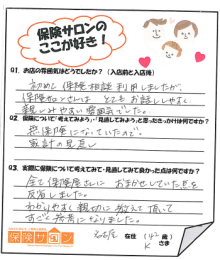 保険サロンの
ここが好き！
Q1. お店の雰囲気はどうでしたか？（入店前と入店後）
初めて保険相談利用しましたが、
保険サロンさんは とてもお話ししやすく
親しみやすい雰囲気でした。
Q2. 保険について「考えてみよう」・「見直してみよう」と思ったきっかけは何ですか？
無保険になっていたので。
家計の見直し
Q3. 実際に保険について考えてみて・見直してみて良かった点は何ですか？
全て保険屋さんに おまかせしていた点を
反省しました。
わかりやすく親切に教えて頂いて
すごく勉強になりました。
保険サロン
名古屋 在住 (42歳)
K さま